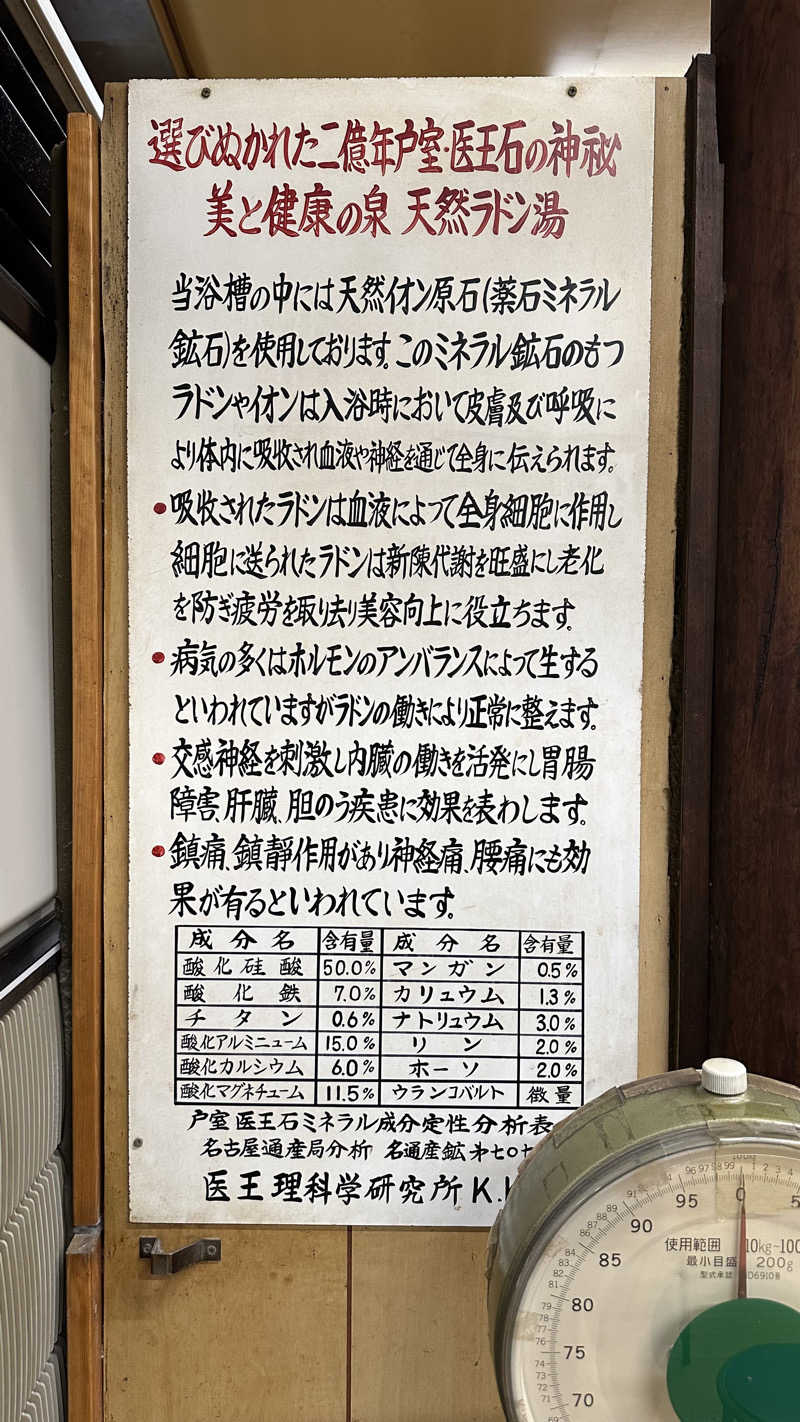 選びぬかれた二億年戸室・医王石の神祕
美と健康の泉 天然ラドン湯
当浴槽の中には天然イオン原石(薬石ミネラル
鉱石)を使用しております。このミネラル鉱石のもつ
ラドンやイオンは入浴時において皮膚及び呼吸に
より体内に吸收され血液や神経を通じて全身に伝えられます。
●吸收されたラドンは血液によって全身細胞に作用し
細胞に送られたラドンは新陳代謝を旺盛にし老化
を防ぎ疲労を取り去り美容向上に役立ちます。
●病気の多くはホルモンのアンバランスによって生する
といわれていますがラドンの働きにより正常に整えます。
●交感神経を刺激し内臓の働きを活発にし胃腸
障害、肝臓、胆のう疾患に効果を表わします。
●鎮痛、鎮靜作用があり神経痛、腰痛にも効
果が有るといわれています。
成分名 含有量 成分名 含有量
酸化硅酸 50.0% マンガン 0.5%
酸化鉄 7.0% カリュウム 1.3%
チタン 0.6% ナトリュウム 3.0%
酸化アルミニューム 15.0% リン 2.0%
酸化カルシウム 6.0% ホーソ 2.0%
酸化マグネチューム 11.5% ウランコバルト 微量
戸室医王石ミネラル成分定性分析表
名古屋通産局分析 名通産鉱才七〇
医王理科学研究所 K.
100kg
0
1
2
3
4
5
99
98
97
96
95
91
90
89
88
87
86
85
84
83
82
81
80
79
78
77
76
75
74
73
72
71
70
69
使用範囲 10kg~100
最小目盛 200g
型式承認 D6910号